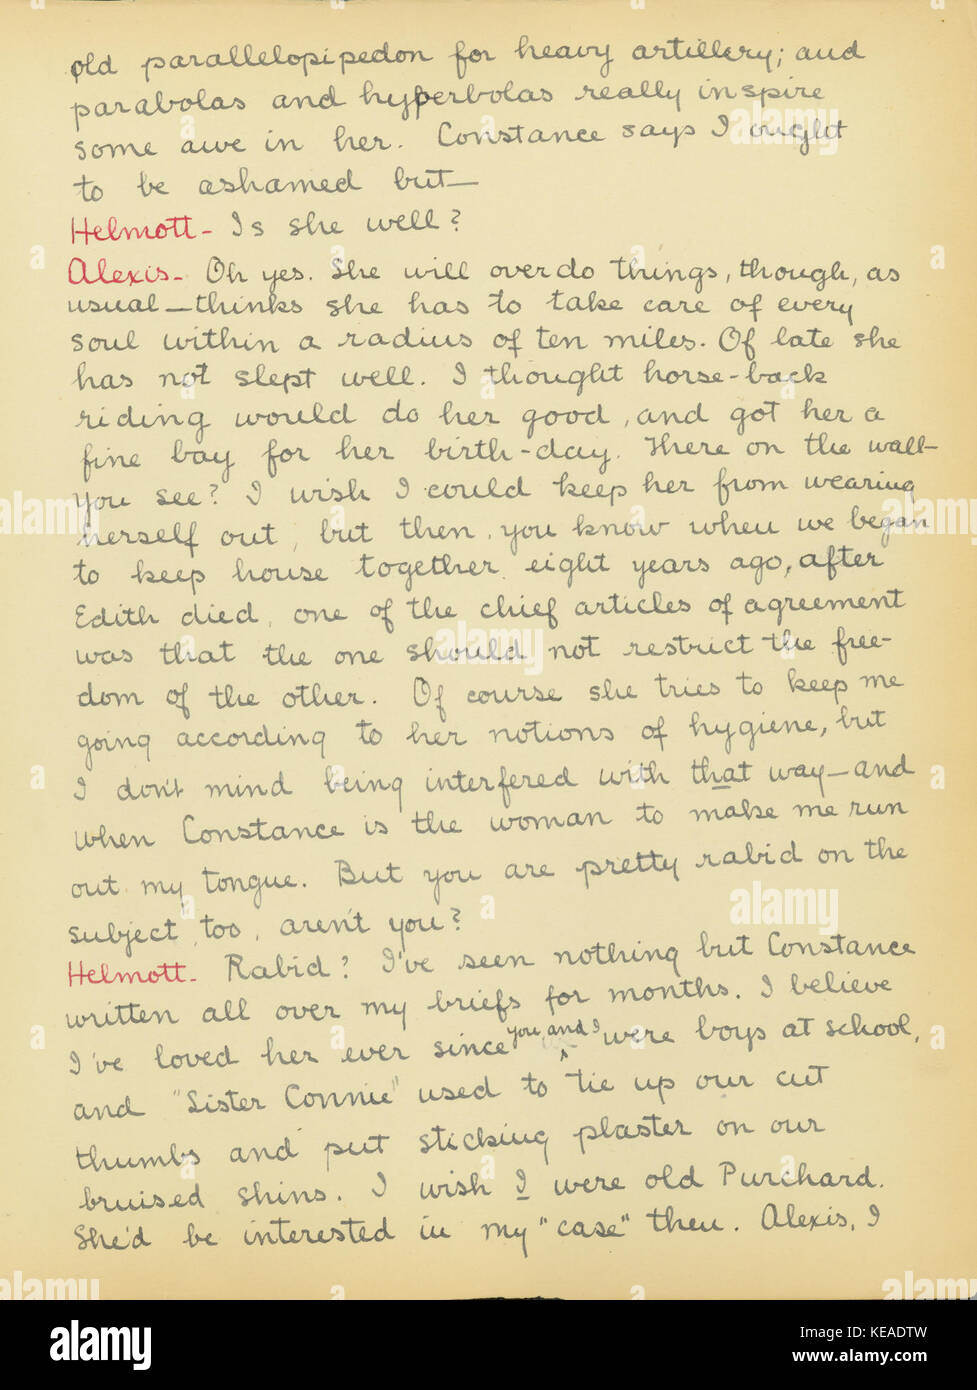 old parallelopipedon for heavy artillery; and
parabolas and hyperbolas really inspire
some awe in her. Constance says I ought
to be ashamed but—
Helmott- Is she well?
Alexis- Oh yes. She will overdo things, though, as
usual—thinks she has to take care of every
soul within a radius of ten miles. Of late she
has not slept well. I thought horse-back
riding would do her good, and got her a
fine bay for her birth-day. There on the wall-
you see? I wish I could keep her from wearing
herself out, but then, you know when we began
to keep house together eight years ago, after
Edith died, one of the chief articles of agreement
was that the one should not restrict the free-
dom of the other. Of course she tries to keep me
going according to her notions of hygiene, but
I don't mind being interfered with that way—and
when Constance is the woman to make me run
out my tongue. But you are pretty rabid on the
subject, too, aren't you?
Helmott- Rabid? I've seen nothing but Constance
written all over my briefs for months. I believe
I've loved her ever since you and I were boys at school,
and "Sister Connie" used to tie up our cut
thumbs and put sticking plaster on our
bruised shins. I wish I were old Purchard.
She'd be interested in my "case" then. Alexis, I
alamy
Image ID: KEADTW
www.alamy.com